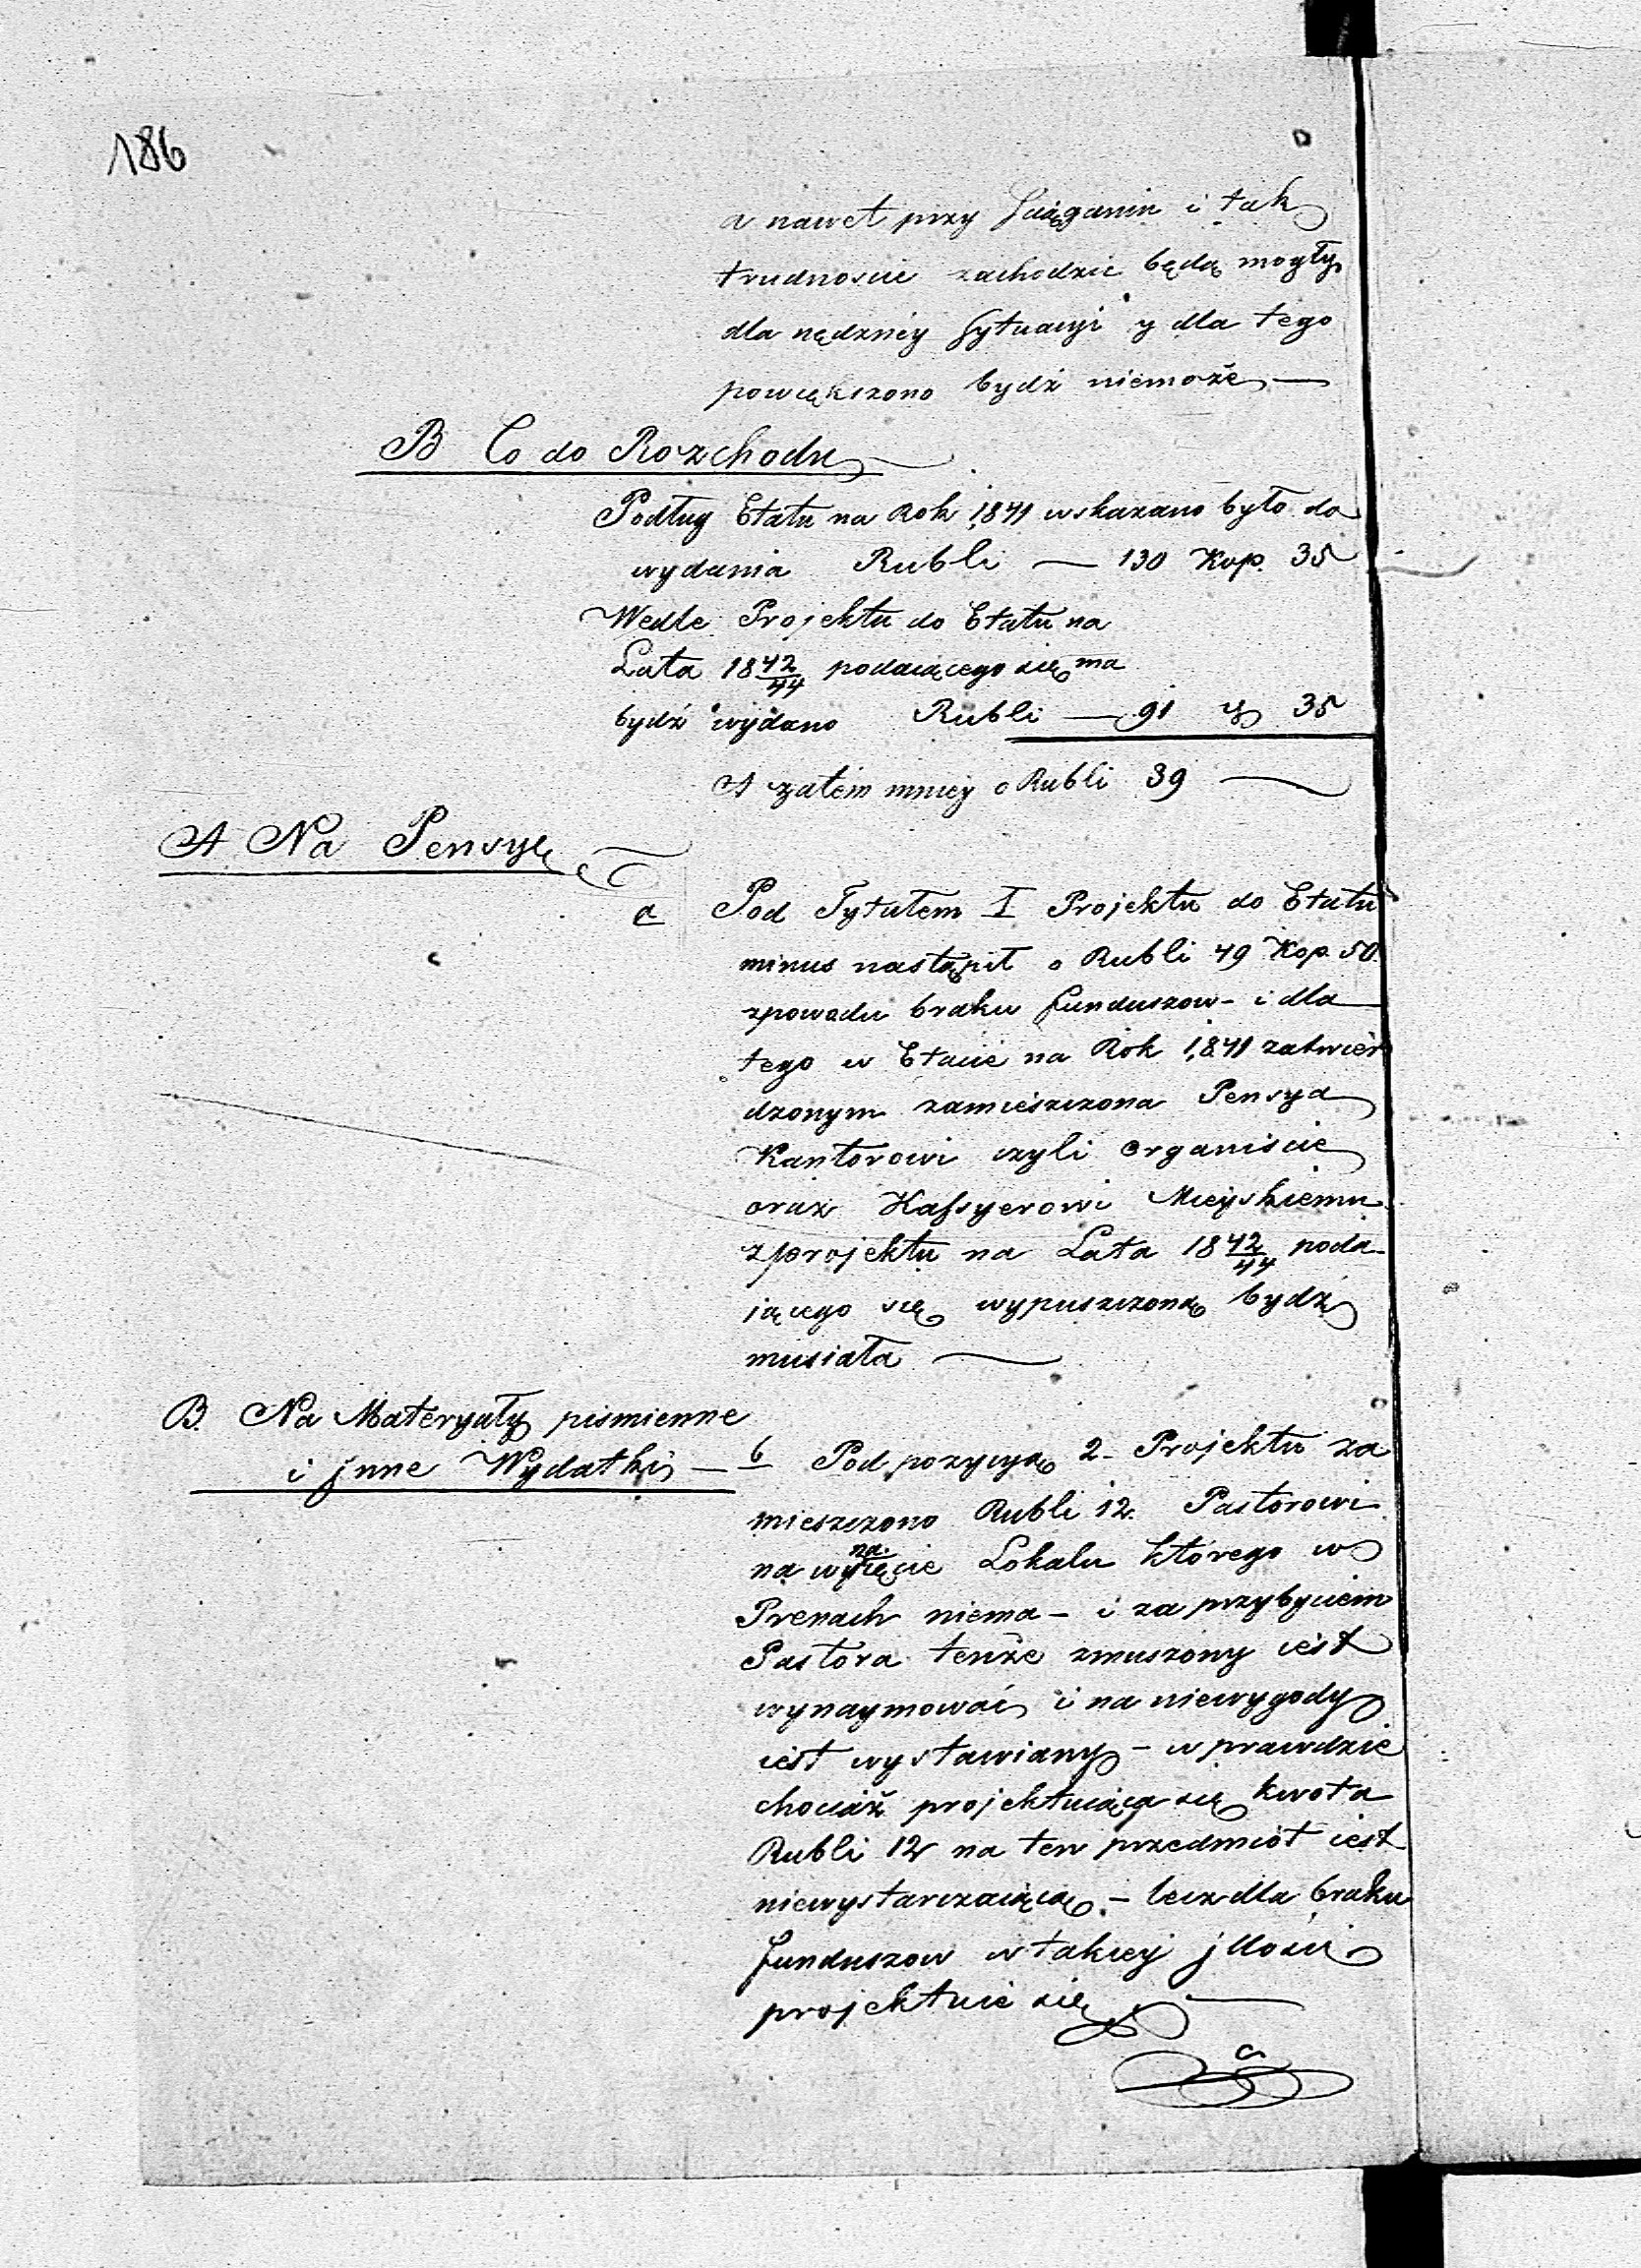 186
a nawet przy sciąganiu i tak
trudnoscie zachodzic będą mogły
dla nędzney sytuacyi y dla tego
powiększono bydź niemoże —
B Co do Rozchodu
Podług Etatu na Rok 1841 wskazano było do
wydania Rubli — 130 Kop. 35
Wedle Projektu do Etatu na
Lata 1842/44 podaiącego się ma
bydź wydano Rubli — 91 " 35
A zatem mniey o Rubli 39 —
A Na Pensye
a Pod Tytułem I Projektu do Etatu
minus nastąpił o Rubli 49 Kop. 50
zpowodu braku funduszow - i dla
tego w Etacie na Rok 1841 zatwier
dzonym zamieszczona Pensya
Kantorowi czyli organiscie
oraz Kassyerowi Mieyskiemu
zprojektu na Lata 1842/44 poda-
iącego się wypuszczoną bydź
musiała —
B. Na Materyały pismienne
i jnne Wydatki —
b Pod pozycyą 2 - Projektu za
mieszczono Rubli 12. Pastorowi
na wynaięcie Lokalu którego w
Prenach niema - i za przybyciem
Pastora tenże zmuszony iest
wynaymować i na niewygody
iest wystawiany - w prawdzie
chociaż projektuiąca się kwota
Rubli 12 na ten przedmiot iest
niewystarczaiącą - lecz dla braku
funduszow w takiey jlosci
projektuie się —